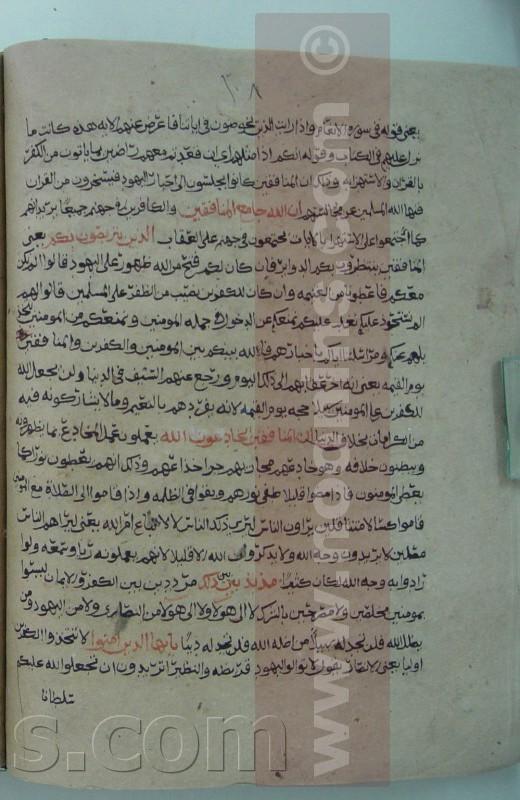 ١٠٨
يعنى قوله فى سورة الانعام واذا رايت الذين يخوضون فى اياتنا فاعرض عنهم الايه هذه كانت ما
نزل عليهم فى الكتاب وقوله انكم اذا مثلهم اى ان قعدتم معهم راضين بما ياتون من الكفر
بالقران والاستهزا به وذلك ان المنافقين كانوا يجلسون الى احبار اليهود فيسخرون من القران
فنها الله المسلمين عن مجالستهم ان الله جامع المنافقين والكافرين فى جهنم جميعا يريد انهم
كما اجتمعوا على الاستهزا بالايات يجتمعون فى جهنم على العقاب الذين يتربصون بكم يعنى
المنافقين ينتظرون بكم الدواير فان كان لكم فتح من الله ظهور على اليهود قالوا الم نكن
معكم فاعطونا من الغنيمه وان كان للكفرين نصيب من الظفر على المسلمين قالوا لهم
الم نستحوذ عليكم نغلب عليكم نمنعكم عن الدخول فى جمله المومنين ونمنعكم من المومنين
فالله يحكم بينكم بين المومنين والكفرين والمنافقين
يوم القيمه يعنى انه اخر عقابهم الى ذلك اليوم ورفع عنهم السيف فى الدنيا ولن يجعل الله
للكفرين على المومنين سبيلا حجه يوم القيمه لانه يفردهم بالنعيم وما لا يشاركونه فيه
من الكرامات بخلاف الدنيا ان المنافقين يخادعون الله يعملون عمل المخادع بما يظهرونه
ويبطنون خلافه وهو خادعهم مجازيهم جزا خداعهم وذلك انهم يعطون نورا كما
يعطى المومنون فاذا مضوا قليلا طفى نورهم وبقوا فى الظلمه واذا قاموا الى الصلاة مع المومنين
قاموا كسالا متثاقلين يراون الناس ليرى ذلك الناس لا لاتباع امر الله يعنى ليراهم الناس
مصلين لا يريدون وجه الله ولا يذكرون الله الا قليلا لانهم يعملونه ريا وسمعه ولو
ارادوا به وجه الله لكان كثيرا مذبذبين بين ذلك مرددين بين الكفر والايمان ليسوا
بمومنين مخلصين ولا مصرحين بالشرك لا الى هولا ولا الى هولا من النصارى ولا من اليهود ومن
يضلل الله فلن تجد له سبيلا من اضله الله فلن تجد له دينا يايها الذين امنوا لا تتخذوا الكفرين
اوليا يعنى الانصار يقول لا توالوا اليهود قريظه والنضير اتريدون ان تجعلوا لله عليكم
سلطانا
www.noorlins.com ©
s.com